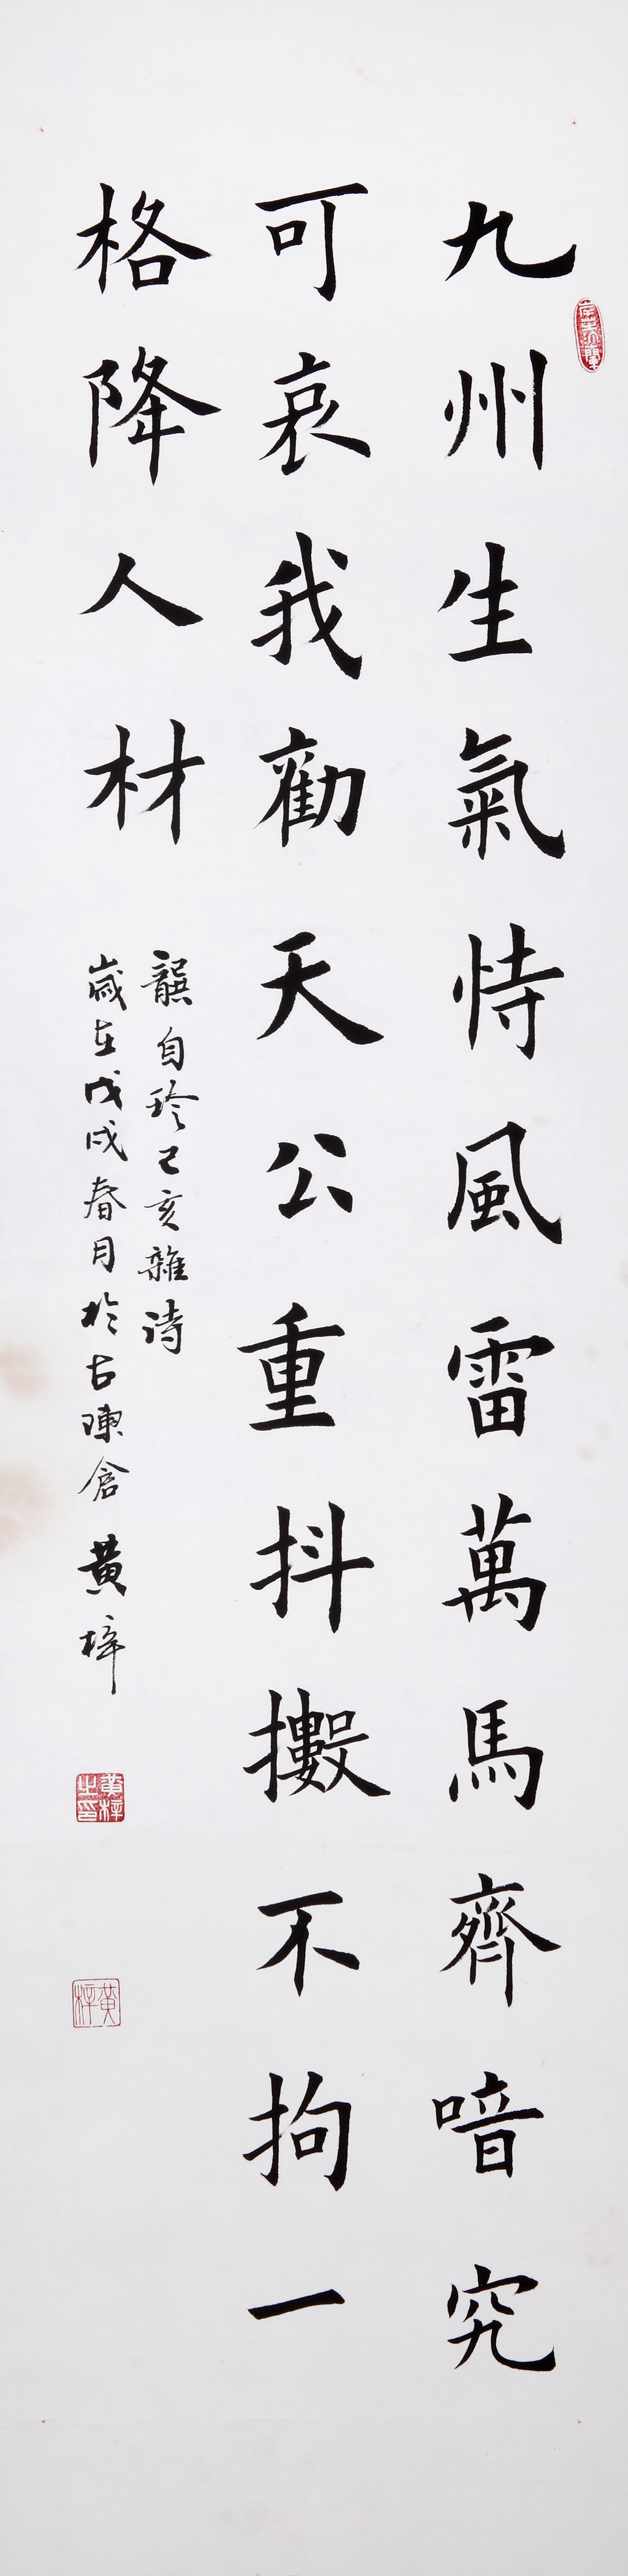 九州生氣恃風雷萬馬齊喑究
可哀我勸天公重抖擻不拘一
格降人材
龔自珍己亥雜诗
歲在戊戌春月於古陳倉黄梓
黄梓之印
黄梓